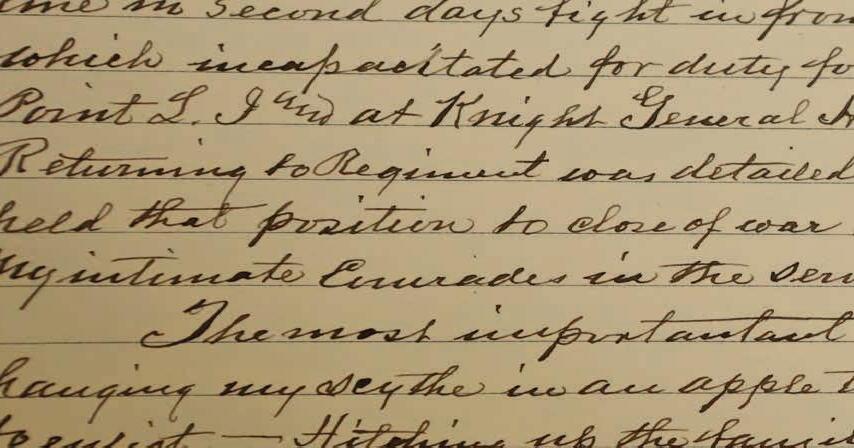 in second days fight in fron
which incapacitated for duty fo
Point L. I and at Knight General H
Returning to Regiment was detailed
held that position to close of war
My intimate Comrades in the serv
The most importantant
hanging my scythe in an apple t
to enlist — Hitching up the famil